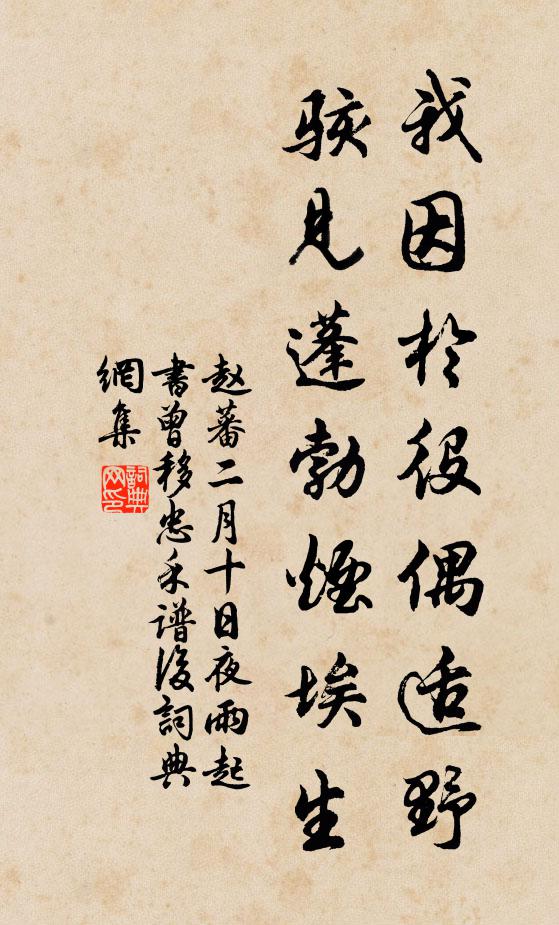 我因於役偶适野
骇見蓬勃煙埃生
赵蕃二月十日夜雨起
書曾移忠禾谱後詞典
網集
詞典網印